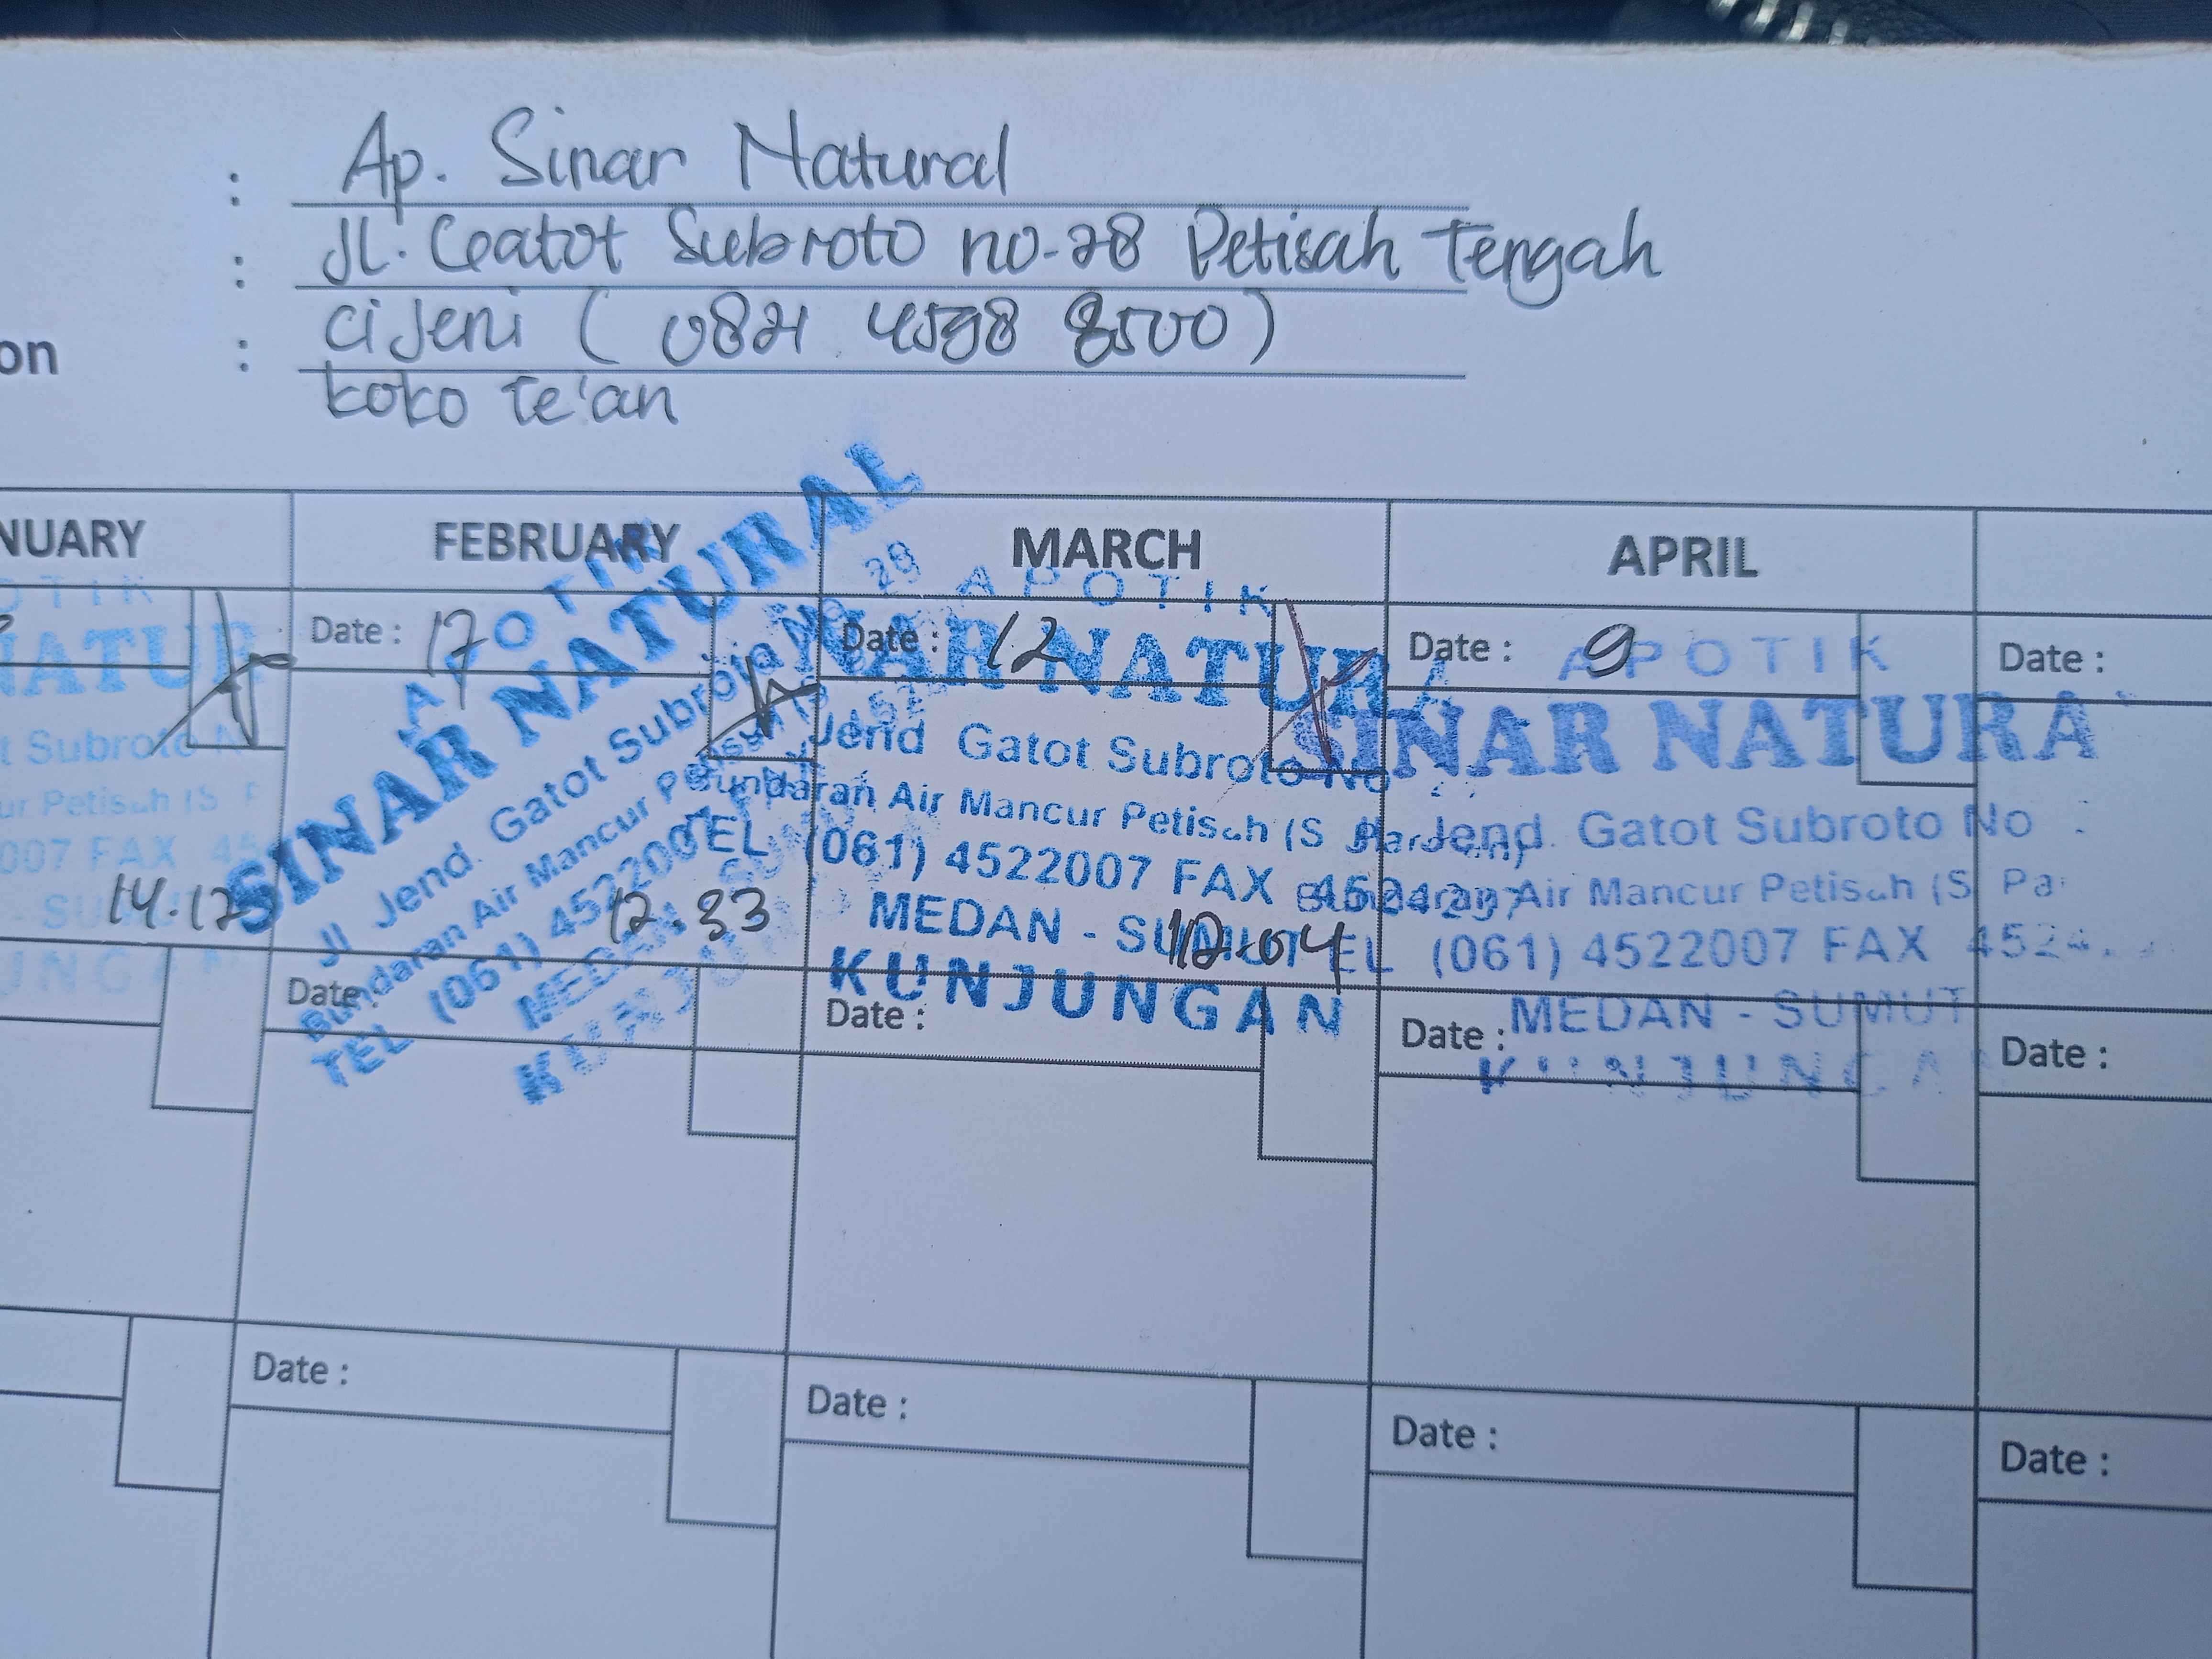 : Ap. Sinar Natural
: Jl. Gatot Subroto no-28 Petisah Tengah
on : ci Jeni ( 0821 4598 8500 )
koko Te'an
NUARY FEBRUARY MARCH APRIL
OTIK
NATUR
t Subroto N
ur Petisah (S P
007 FAX 45
- SU
UNGAN
14.12
Date : 17
APOTIK
SINAR NATURAL
Jl Jend. Gatot Subroto No 28
Bundaran Air Mancur Petisah (S
TEL (061) 4522007
MEDAN
KUNJU
12.33
Date : 12
APOTIK
NAR NATURA
Jend Gatot Subroto No
Bundaran Air Mancur Petisah (S Parman)
TEL (061) 4522007 FAX 4524297
MEDAN - SUMUT
KUNJUNGAN
12.04
Date : 9
APOTIK
SINAR NATURA
Jend. Gatot Subroto No
Bundaran Air Mancur Petisah (S Pa
TEL (061) 4522007 FAX 452
MEDAN - SUMUT
KUNJUNGAN
Date :
Date : Date : Date : Date :
Date : Date : Date : Date :